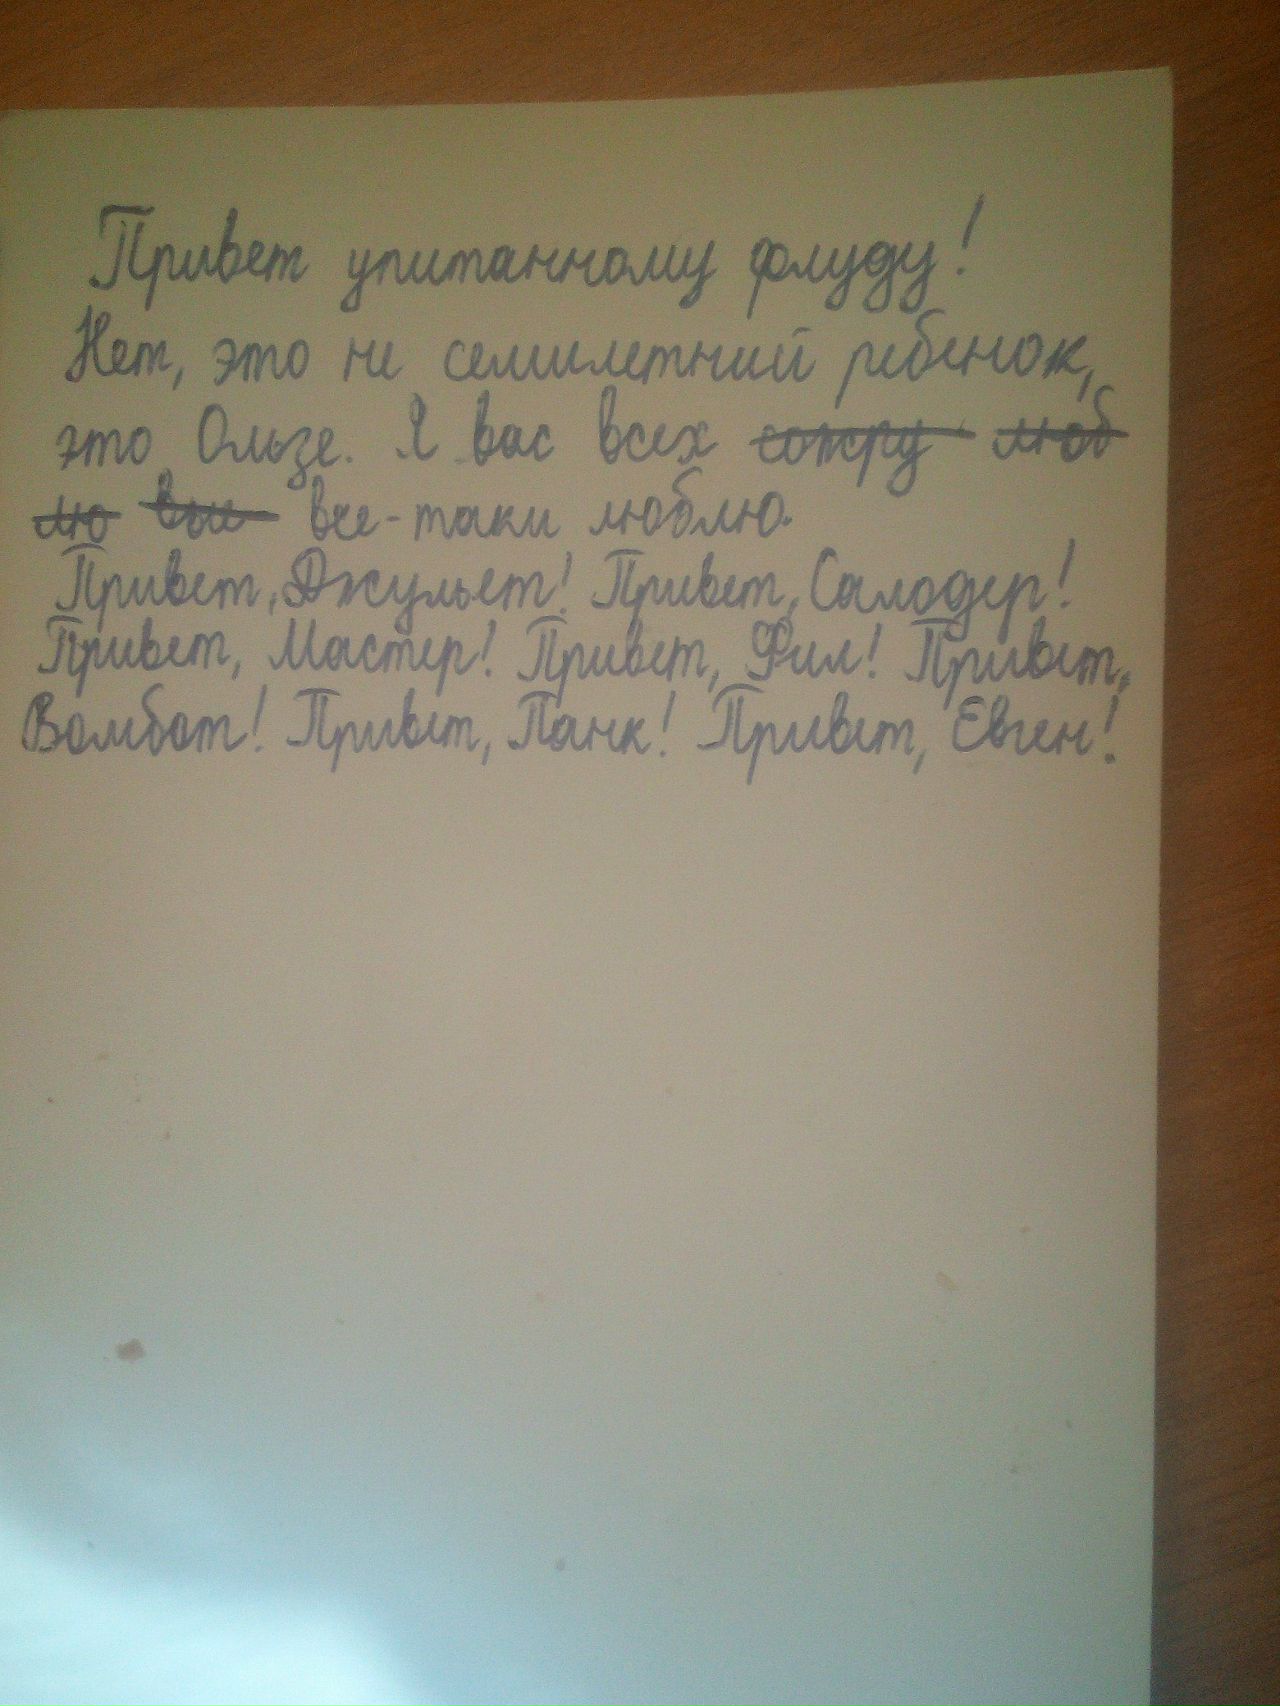 Привет упитанному флуду!
Нет, это не семилетний ребенок,
это Ользе. Я вас всех сожру люб
лю вы все-таки люблю.
Привет, Джульет! Привет, Салодер!
Привет, Мастер! Привет, Фил! Привет,
Вомбат! Привет, Панк! Привет, Евген!